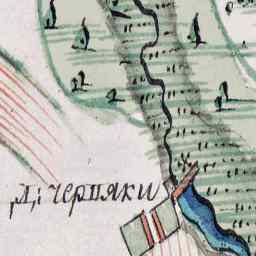 Д: черпяки